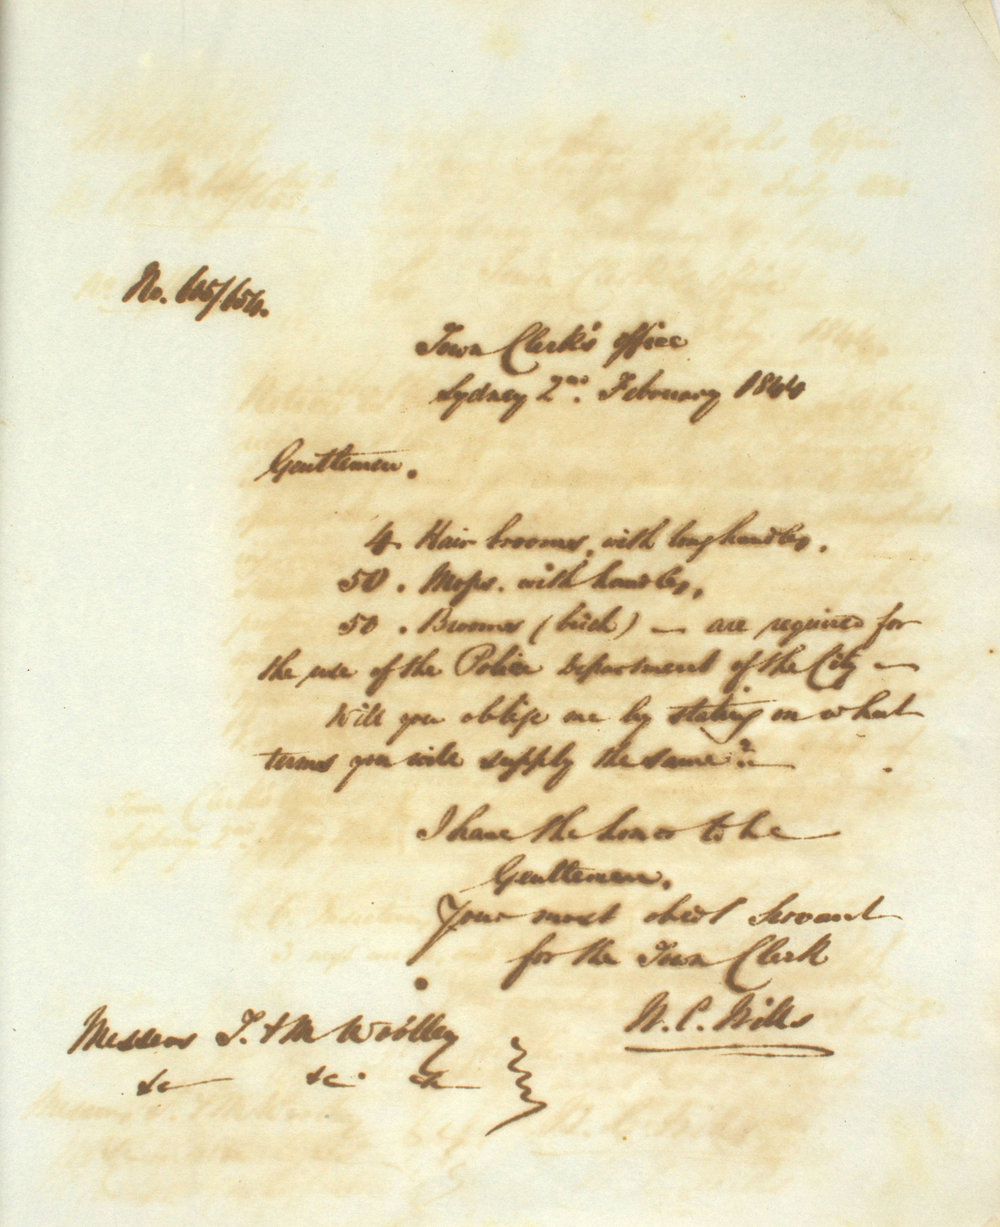 No. 605/654.
Town Clerk's office
Sydney 2nd. February 1844
Gentlemen.
4. Hair brooms, with long handles,
50. Mops. with handles,
50. Brooms (birch) — are required for
the use of the Police Department of the City —
Will you oblige me by stating on what
terms you will supply the same :—
I have the honor to be
Gentlemen,
Your most obedt Servant
for the Town Clerk
W. C. Wills
Messers T. & M Woolley
&c &c. &c